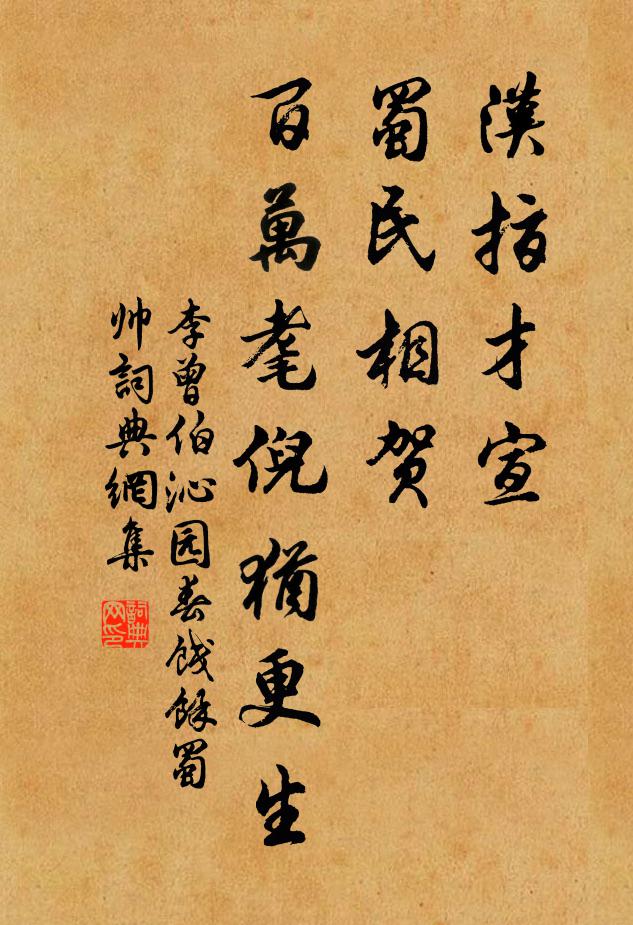 漢指才宣
蜀民相贺
百萬耄倪猶更生
李曾伯沁园春餞餘蜀
帅詞典網集
詞典网印